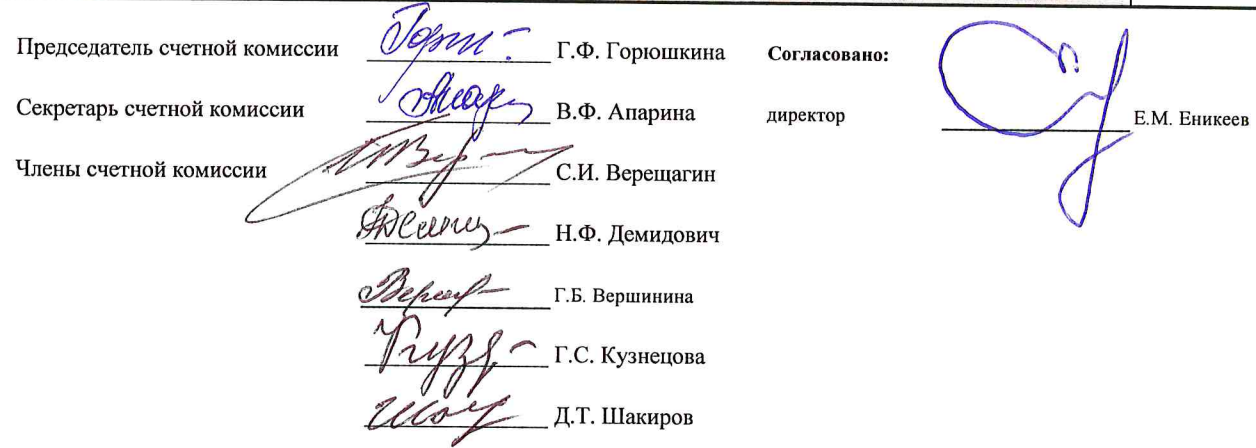 Председатель счетной комиссии Г.Ф. Горюшкина
Секретарь счетной комиссии В.Ф. Апарина
Члены счетной комиссии С.И. Верещагин
Н.Ф. Демидович
Г.Б. Вершинина
Г.С. Кузнецова
Д.Т. Шакиров
Согласовано:
директор Е.М. Еникеев